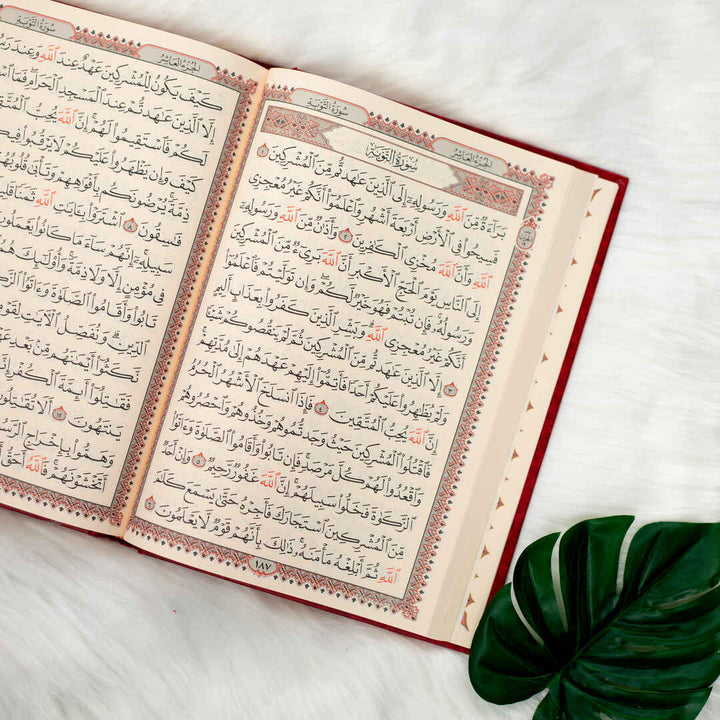 سُورَةُ التَّوْبَةِ
الجُزْءُ العَاشِرُ
سُورَةُ التَّوْبَةِ
بَرَآءَةٌ مِّنَ ٱللَّهِ وَرَسُولِهِۦٓ إِلَى ٱلَّذِينَ عَٰهَدتُّم مِّنَ ٱلْمُشْرِكِينَ ١
فَسِيحُوا۟ فِى ٱلْأَرْضِ أَرْبَعَةَ أَشْهُرٍ وَٱعْلَمُوٓا۟ أَنَّكُمْ غَيْرُ مُعْجِزِى
ٱللَّهِ وَأَنَّ ٱللَّهَ مُخْزِى ٱلْكَٰفِرِينَ ٢ وَأَذَٰنٌ مِّنَ ٱللَّهِ وَرَسُولِهِۦٓ
إِلَى ٱلنَّاسِ يَوْمَ ٱلْحَجِّ ٱلْأَكْبَرِ أَنَّ ٱللَّهَ بَرِىٓءٌ مِّنَ ٱلْمُشْرِكِينَ
وَرَسُولُهُۥ فَإِن تُبْتُمْ فَهُوَ خَيْرٌ لَّكُمْ وَإِن تَوَلَّيْتُمْ فَٱعْلَمُوٓا۟
أَنَّكُمْ غَيْرُ مُعْجِزِى ٱللَّهِ وَبَشِّرِ ٱلَّذِينَ كَفَرُوا۟ بِعَذَابٍ أَلِيمٍ
٣ إِلَّا ٱلَّذِينَ عَٰهَدتُّم مِّنَ ٱلْمُشْرِكِينَ ثُمَّ لَمْ يَنقُصُوكُمْ شَيْـًٔا
وَلَمْ يُظَٰهِرُوا۟ عَلَيْكُمْ أَحَدًا فَأَتِمُّوٓا۟ إِلَيْهِمْ عَهْدَهُمْ إِلَىٰ مُدَّتِهِمْ
إِنَّ ٱللَّهَ يُحِبُّ ٱلْمُتَّقِينَ ٤ فَإِذَا ٱنسَلَخَ ٱلْأَشْهُرُ ٱلْحُرُمُ
فَٱقْتُلُوا۟ ٱلْمُشْرِكِينَ حَيْثُ وَجَدتُّمُوهُمْ وَخُذُوهُمْ وَٱحْصُرُوهُمْ
وَٱقْعُدُوا۟ لَهُمْ كُلَّ مَرْصَدٍ فَإِن تَابُوا۟ وَأَقَامُوا۟ ٱلصَّلَوٰةَ وَءَاتَوُا۟
ٱلزَّكَوٰةَ فَخَلُّوا۟ سَبِيلَهُمْ إِنَّ ٱللَّهَ غَفُورٌ رَّحِيمٌ ٥ وَإِنْ أَحَدٌ
مِّنَ ٱلْمُشْرِكِينَ ٱسْتَجَارَكَ فَأَجِرْهُ حَتَّىٰ يَسْمَعَ كَلَٰمَ
ٱللَّهِ ثُمَّ أَبْلِغْهُ مَأْمَنَهُۥ ذَٰلِكَ بِأَنَّهُمْ قَوْمٌ لَّا يَعْلَمُونَ ٦
١٨٧
الجُزْءُ العَاشِرُ
سُورَةُ التَّوْبَةِ
كَيْفَ يَكُونُ لِلْمُشْرِكِينَ عَهْدٌ عِندَ ٱللَّهِ وَعِندَ
إِلَّا ٱلَّذِينَ عَٰهَدتُّمْ عِندَ ٱلْمَسْجِدِ ٱلْحَرَامِ فَمَا
لَكُمْ فَٱسْتَقِيمُوا۟ لَهُمْ إِنَّ ٱللَّهَ يُحِبُّ
كَيْفَ وَإِن يَظْهَرُوا۟ عَلَيْكُمْ لَا يَرْقُبُوا۟
ذِمَّةً يُرْضُونَكُم بِأَفْوَٰهِهِمْ وَتَأْبَىٰ
فَٰسِقُونَ ٨ ٱشْتَرَوْا۟ بِـَٔايَٰتِ ٱللَّهِ ثَمَنًا
سَبِيلِهِۦٓ إِنَّهُمْ سَآءَ مَا كَانُوا۟
فِى مُؤْمِنٍ إِلًّا وَلَا ذِمَّةً وَأُو۟لَٰٓئِكَ
تَابُوا۟ وَأَقَامُوا۟ ٱلصَّلَوٰةَ
ٱلدِّينِ وَنُفَصِّلُ ٱلْـَٔايَٰتِ لِقَوْمٍ
نَّكَثُوٓا۟ أَيْمَٰنَهُم مِّنۢ بَعْدِ
فَقَٰتِلُوٓا۟ أَئِمَّةَ ٱلْكُفْرِ
يَنتَهُونَ ١٢ أَلَا
وَهَمُّوا۟ بِإِخْرَاجِ
أَتَخْشَوْنَهُمْ فَٱللَّهُ أَحَقُّ